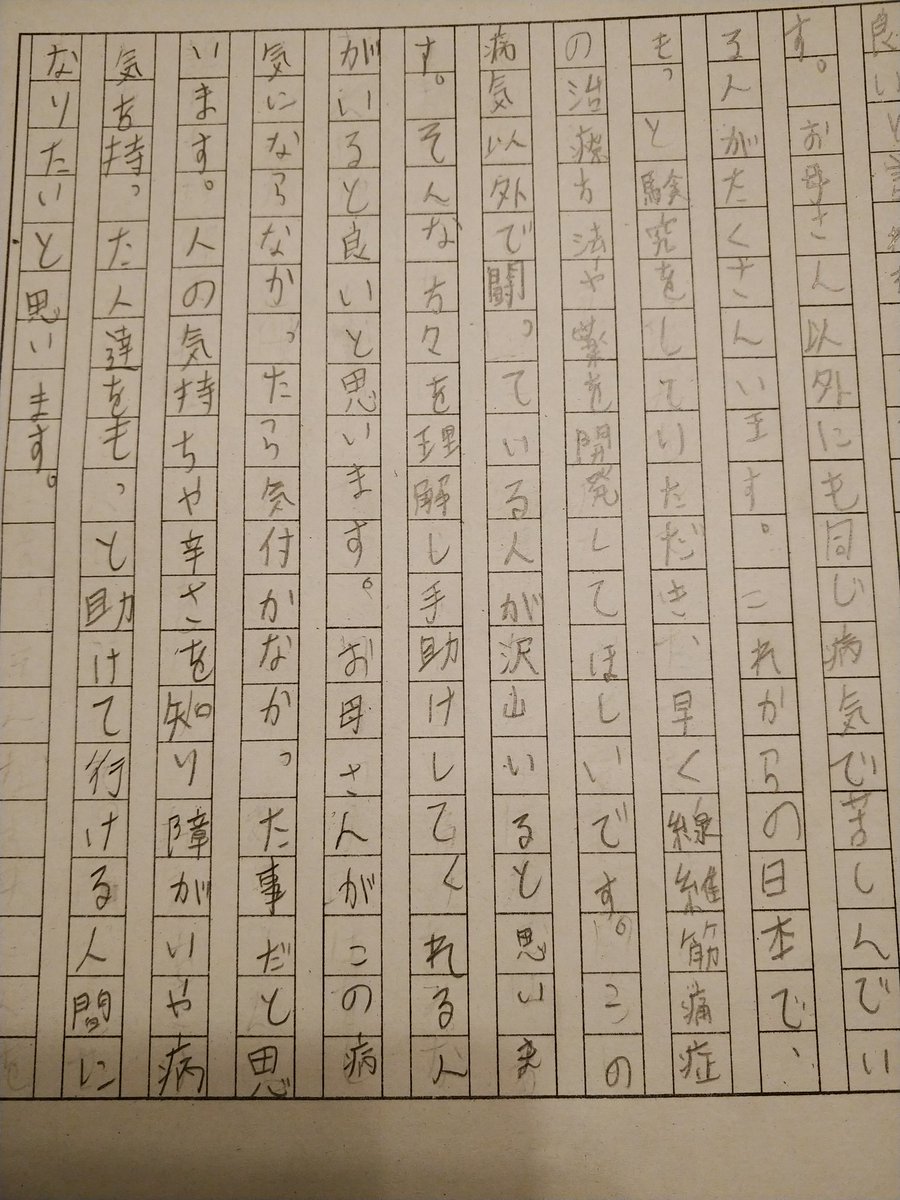 良いと
す。お母さん以外にも同じ病気で苦しんでい
る人がたくさんいます。これからの日本で、
もっと験究をしていただき、早く線維筋痛症
の治療方法や薬を開発してほしいです。この
病気以外で闘っている人が沢山いると思いま
す。そんな方々を理解し手助けしてくれる人
がいると良いと思います。お母さんがこの病
気にならなかったら気付かなかった事だと思
います。人の気持ちや辛さを知り障がいや病
気を持った人達をもっと助けて行ける人間に
なりたいと思います。